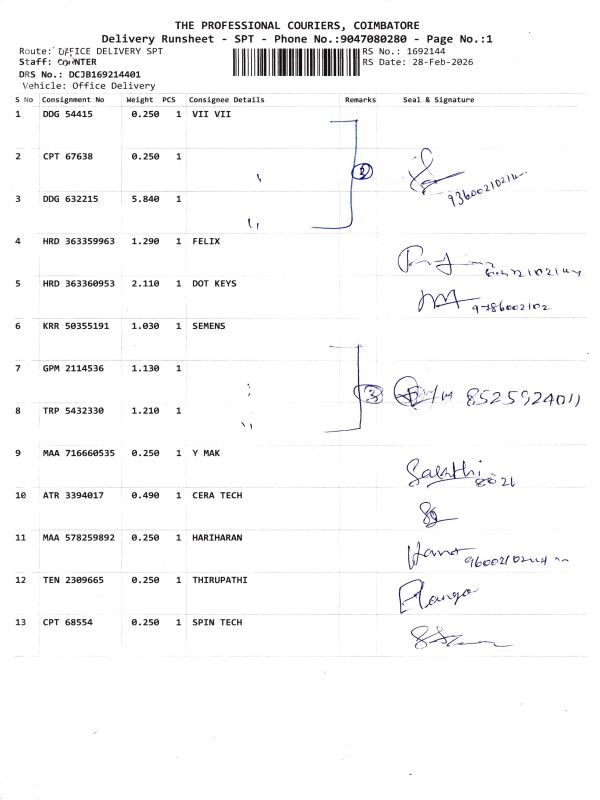 THE PROFESSIONAL COURIERS, COIMBATORE
Delivery Runsheet - SPT - Phone No.:9047080280 - Page No.:1
Route: OFFICE DELIVERY SPT
RS No.: 1692144
Staff: COUNTER
RS Date: 28-Feb-2026
DRS No.: DCJB169214401
Vehicle: Office Delivery
S No Consignment No Weight PCS Consignee Details Remarks Seal & Signature
1 DDG 54415 0.250 1 VII VII
2 CPT 67638 0.250 1
3 DDG 632215 5.840 1
4 HRD 363359963 1.290 1 FELIX
5 HRD 363360953 2.110 1 DOT KEYS
6 KRR 50355191 1.030 1 SEMENS
7 GPM 2114536 1.130 1
3 8525924011
8 TRP 5432330 1.210 1
9 MAA 716660535 0.250 1 Y MAK
Sakthi
10 ATR 3394017 0.490 1 CERA TECH
11 MAA 578259892 0.250 1 HARIHARAN
12 TEN 2309665 0.250 1 THIRUPATHI
Elango
13 CPT 68554 0.250 1 SPIN TECH